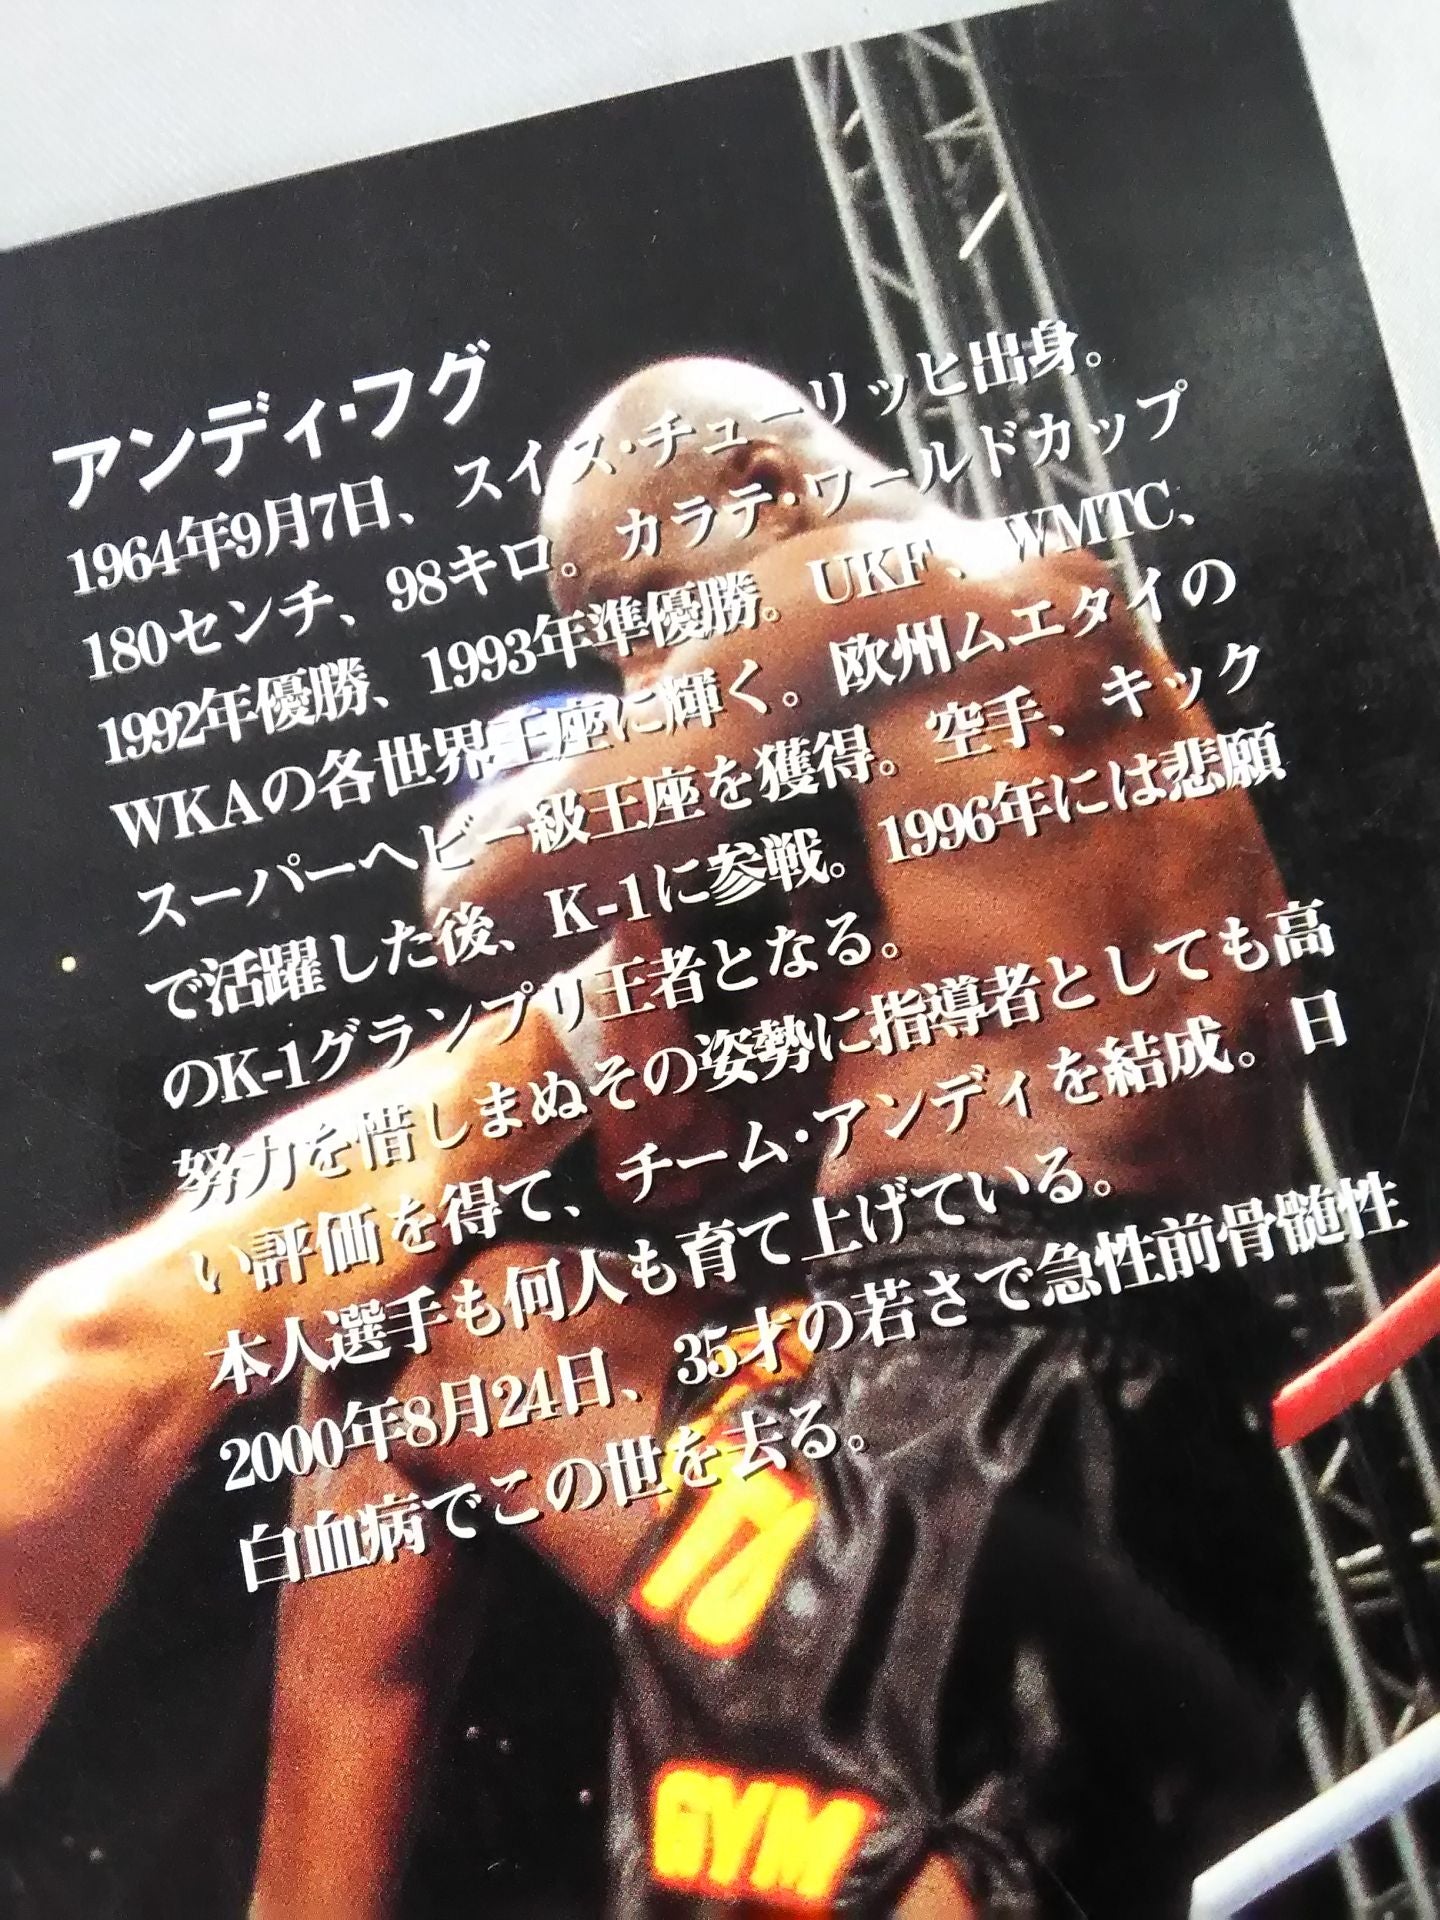 アンディ・フグ
1964年9月7日、スイス・チューリッヒ出身。
180センチ、98キロ。カラテ・ワールドカップ
1992年優勝、1993年準優勝。UKF、WMTC、
WKAの各世界王座に輝く。欧州ムエタイの
スーパーヘビー級王座を獲得。空手、キック
で活躍した後、K-1に参戦。1996年には悲願
のK-1グランプリ王者となる。
努力を惜しまぬその姿勢に指導者としても高
い評価を得て、チーム・アンディを結成。日
本人選手も何人も育て上げている。
2000年8月24日、35才の若さで急性前骨髄性
白血病でこの世を去る。
GYM